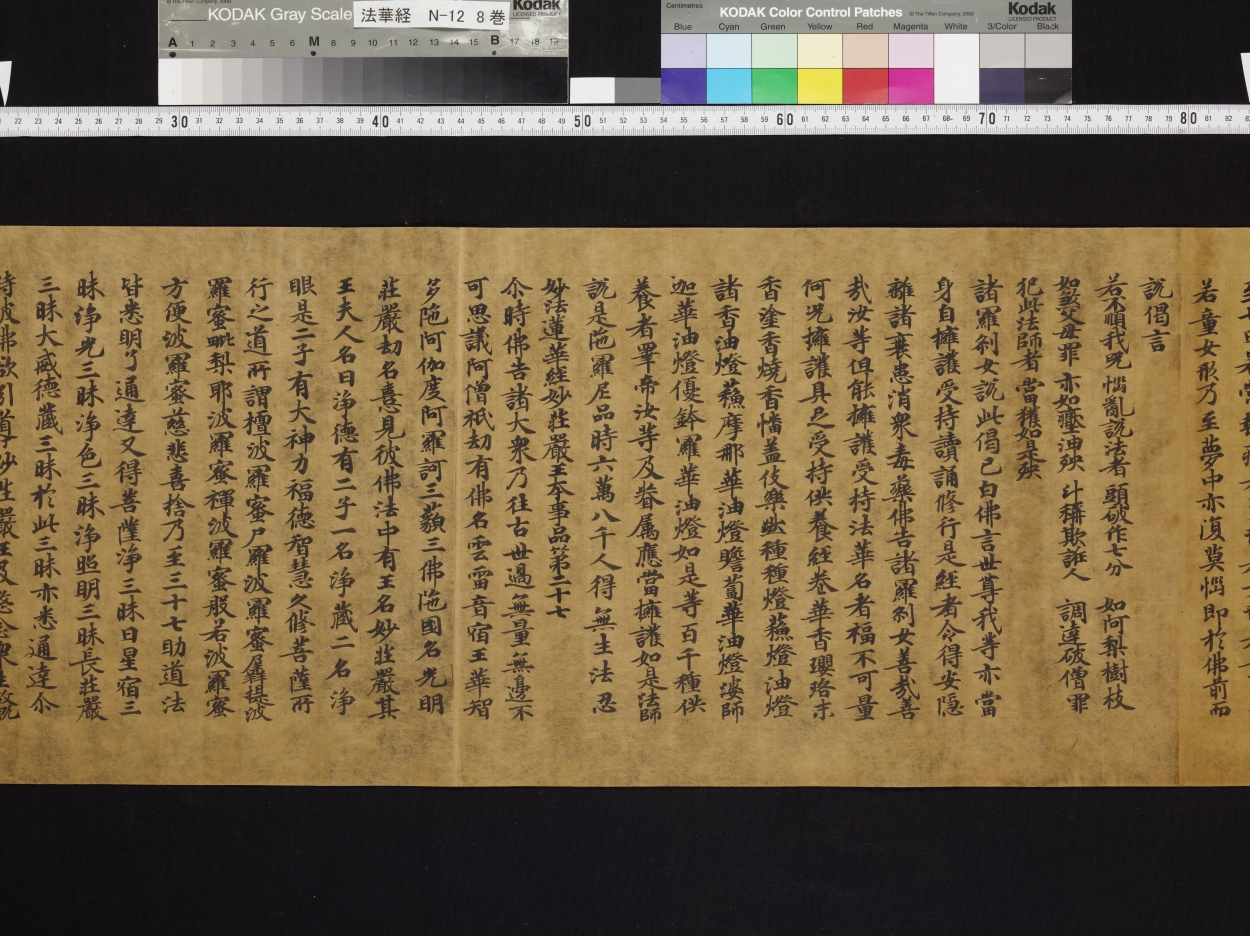 © The Tiffen Company, 2000
KODAK Gray Scale
法華経 N-12 8巻
Kodak
LICENSED PRODUCT
A 1 2 3 4 5 6 M 8 9 10 11 12 13 14 15 B 17 18 19
Centimetres
KODAK Color Control Patches
© The Tiffen Company, 2000
Kodak
LICENSED PRODUCT
Blue Cyan Green Yellow Red Magenta White 3/Color Black
22 23 24 25 26 27 28 29 30 31 32 33 34 35 36 37 38 39 40 41 42 43 44 45 46 47 48 49 50 51 52 53 54 55 56 57 58 59 60 61 62 63 64 65 66 67 68 69 70 71 72 73 74 75 76 77 78 79 80 81 82
若童女形乃至夢中亦復莫惱即於佛前而
説偈言
若不順我呪 惱亂説法者 頭破作七分 如阿梨樹枝
如煞父母罪 亦如壓油殃 斗稱欺誑人 調達破僧罪
犯此法師者 當獲如是殃
諸羅刹女説此偈已白佛言世尊我等亦當
身自擁護受持讀誦修行是經者令得安隱
離諸衰患消衆毒藥佛告諸羅刹女善哉善
哉汝等但能擁護受持法華名者福不可量
何況擁護具足受持供養經卷華香瓔珞末
香塗香燒香幡盖伎樂㸐種種燈蘇燈油燈
諸香油燈蘓摩那華油燈瞻蔔華油燈婆師
迦華油燈優鉢羅華油燈如是等百千種供
養者睪帝汝等及眷属應當擁護如是法師
説是陁羅尼品時六萬八千人得無生法忍
妙法蓮華經妙莊嚴王本事品第二十七
尒時佛告諸大衆乃往古世過無量無邊不
可思議阿僧祇劫有佛名雲雷音宿王華智
多陁阿伽度阿羅訶三藐三佛陁國名光明
莊嚴劫名憙見彼佛法中有王名妙莊嚴其
王夫人名曰浄德有二子一名浄藏二名浄
眼是二子有大神力福德智慧久修菩薩所
行之道所謂檀波羅蜜尸羅波羅蜜羼提波
羅蜜毗梨耶波羅蜜禪波羅蜜般若波羅蜜
方便波羅蜜慈悲喜捨乃至三十七助道法
皆悉明了通達又得菩薩浄三昧日星宿三
昧浄光三昧浄色三昧浄照明三昧長莊嚴
三昧大威德藏三昧於此三昧亦悉通達尒
時彼佛欲引導妙莊嚴王及愍念衆生故説